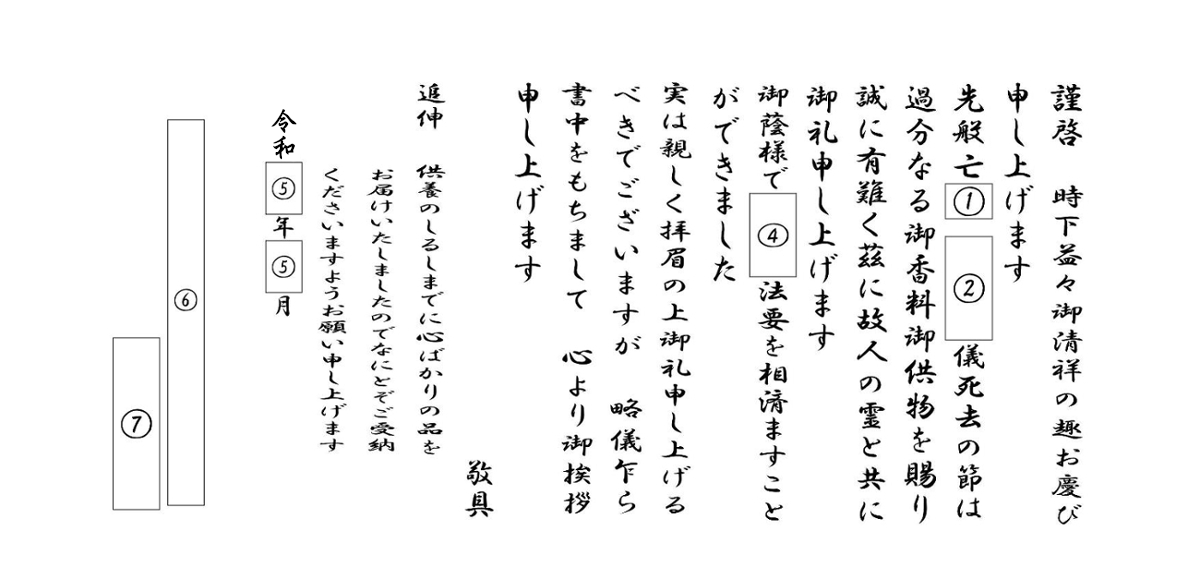 謹啓　時下益々御清祥の趣お慶び
申し上げます
先般亡①②儀死去の節は
過分なる御香料御供物を賜り
誠に有難く茲に故人の霊と共に
御礼申し上げます
御蔭様で④法要を相済ますこと
ができました
実は親しく拝眉の上御礼申し上げる
べきでございますが　略儀乍ら
書中をもちまして　心より御挨拶
申し上げます
敬具
追伸　供養のしるしまでに心ばかりの品を
お届けいたしましたのでなにとぞご受納
くださいますようお願い申し上げます
令和⑤年⑤月
⑥
⑦